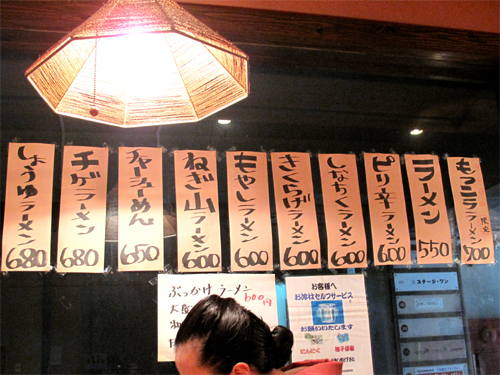 もつラーメン 限定 700
ラーメン 550
ピリ辛ラーメン 600
しなちくラーメン 600
きくらげラーメン 600
もやしラーメン 600
ねぎ山ラーメン 600
チャーシューめん 650
チゲラーメン 680
しょうゆラーメン 680
ぶっかけラーメン 600円
お客様へ
お冷はセルフサービス
お願いいたします
にんにく
柚子胡椒
ステージ・ワン